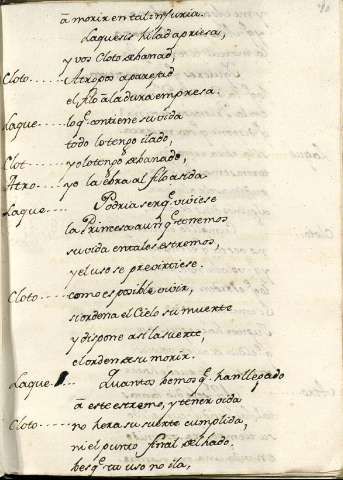 à morir en tal injuria.
Laquesis hilad apriesa,
y vos Cloto debanad,
Cloto..... Atropos aparejad
el filo à la dura empresa.
Laque.... lo q̃. contiene su vida
todo lo tengo ilado,
Clot..... yo lo tengo debanado,
Atro..... yo la ebra al filo asida
Laque.... Podria ser q̃. viviese
la Princesa aunq̃. tenemos
su vida en tales estremos,
y el uso se previrtiese.
Cloto..... como es posible vivir,
si ordena el Cielo su muerte
y dispone asi la suerte,
el orden de su morir.
Laque.... Quantos hemos q̃. han llegado
à este estremo, y tener vida
Cloto..... no hera su suerte cumplida,
ni el punto final del hado.
bes q̃. tu uso no ila,